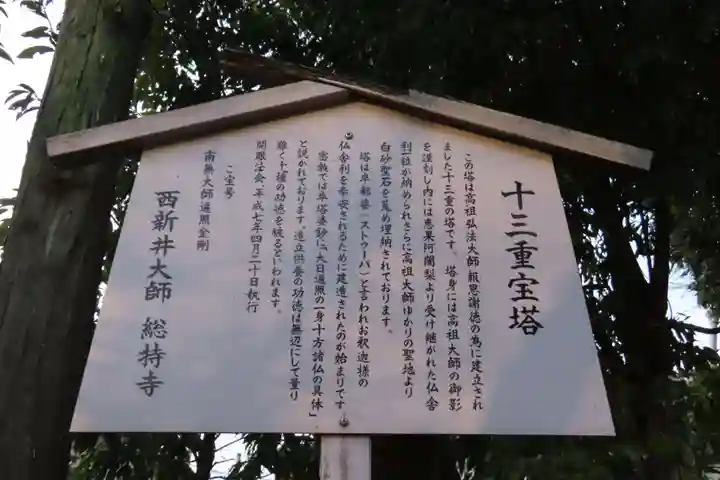 十三重宝塔
この塔は高祖弘法大師報恩謝徳の為に建立され
ました十三重の塔です。塔身には高祖大師の御影
を謹刻し内には恵果阿闍梨より受け継がれた仏舎
利一粒が納められさらに高祖大師ゆかりの聖地より
白砂聖石を蒐め埋納されております。
塔は卒都婆（ストゥーパ）と言われお釈迦様の
仏舎利を奉安されるために建造されたのが始まりです。
密教では卒塔婆鈔に「大日遍照の一身十方諸仏の具体」
と説かれております。造立供養の功徳は無辺にして量り
難く十種の功徳を被るといわれます。
開眼法会・平成七年四月二十日執行
ご宝号
南無大師遍照金剛
西新井大師 総持寺